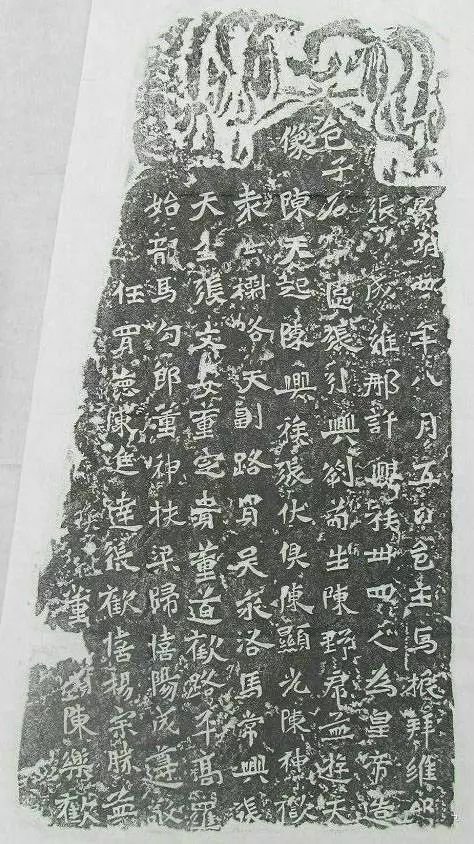 景明四年八月五日邑主馬振拜維那
張子成維那許興族卅四人為皇帝造
邑子石像一區張引興劉苟生陳野虎孟遊天
像陳天起陳興族張伏俱陳顯光陳神歡
路天副路買吳永洛馬常興張
天生張文安董定貴董道歡路平高羅
始部馬勾郎董神扶梁歸憘陽成遵敬
任買德陳進達張歡憘楊宗勝孟
董陳樂歡